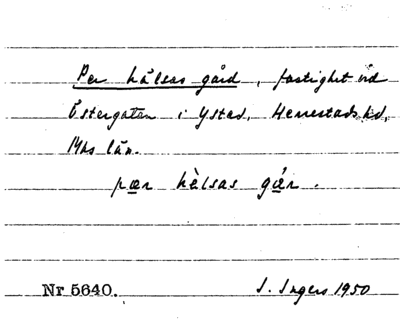 Per hälsas gård, fastighet vid
Östergatan i Ystad, Herrestads hd,
Mhs län.
pær hèlsas gǻr.
Nr 5640. I. Ingers 1950